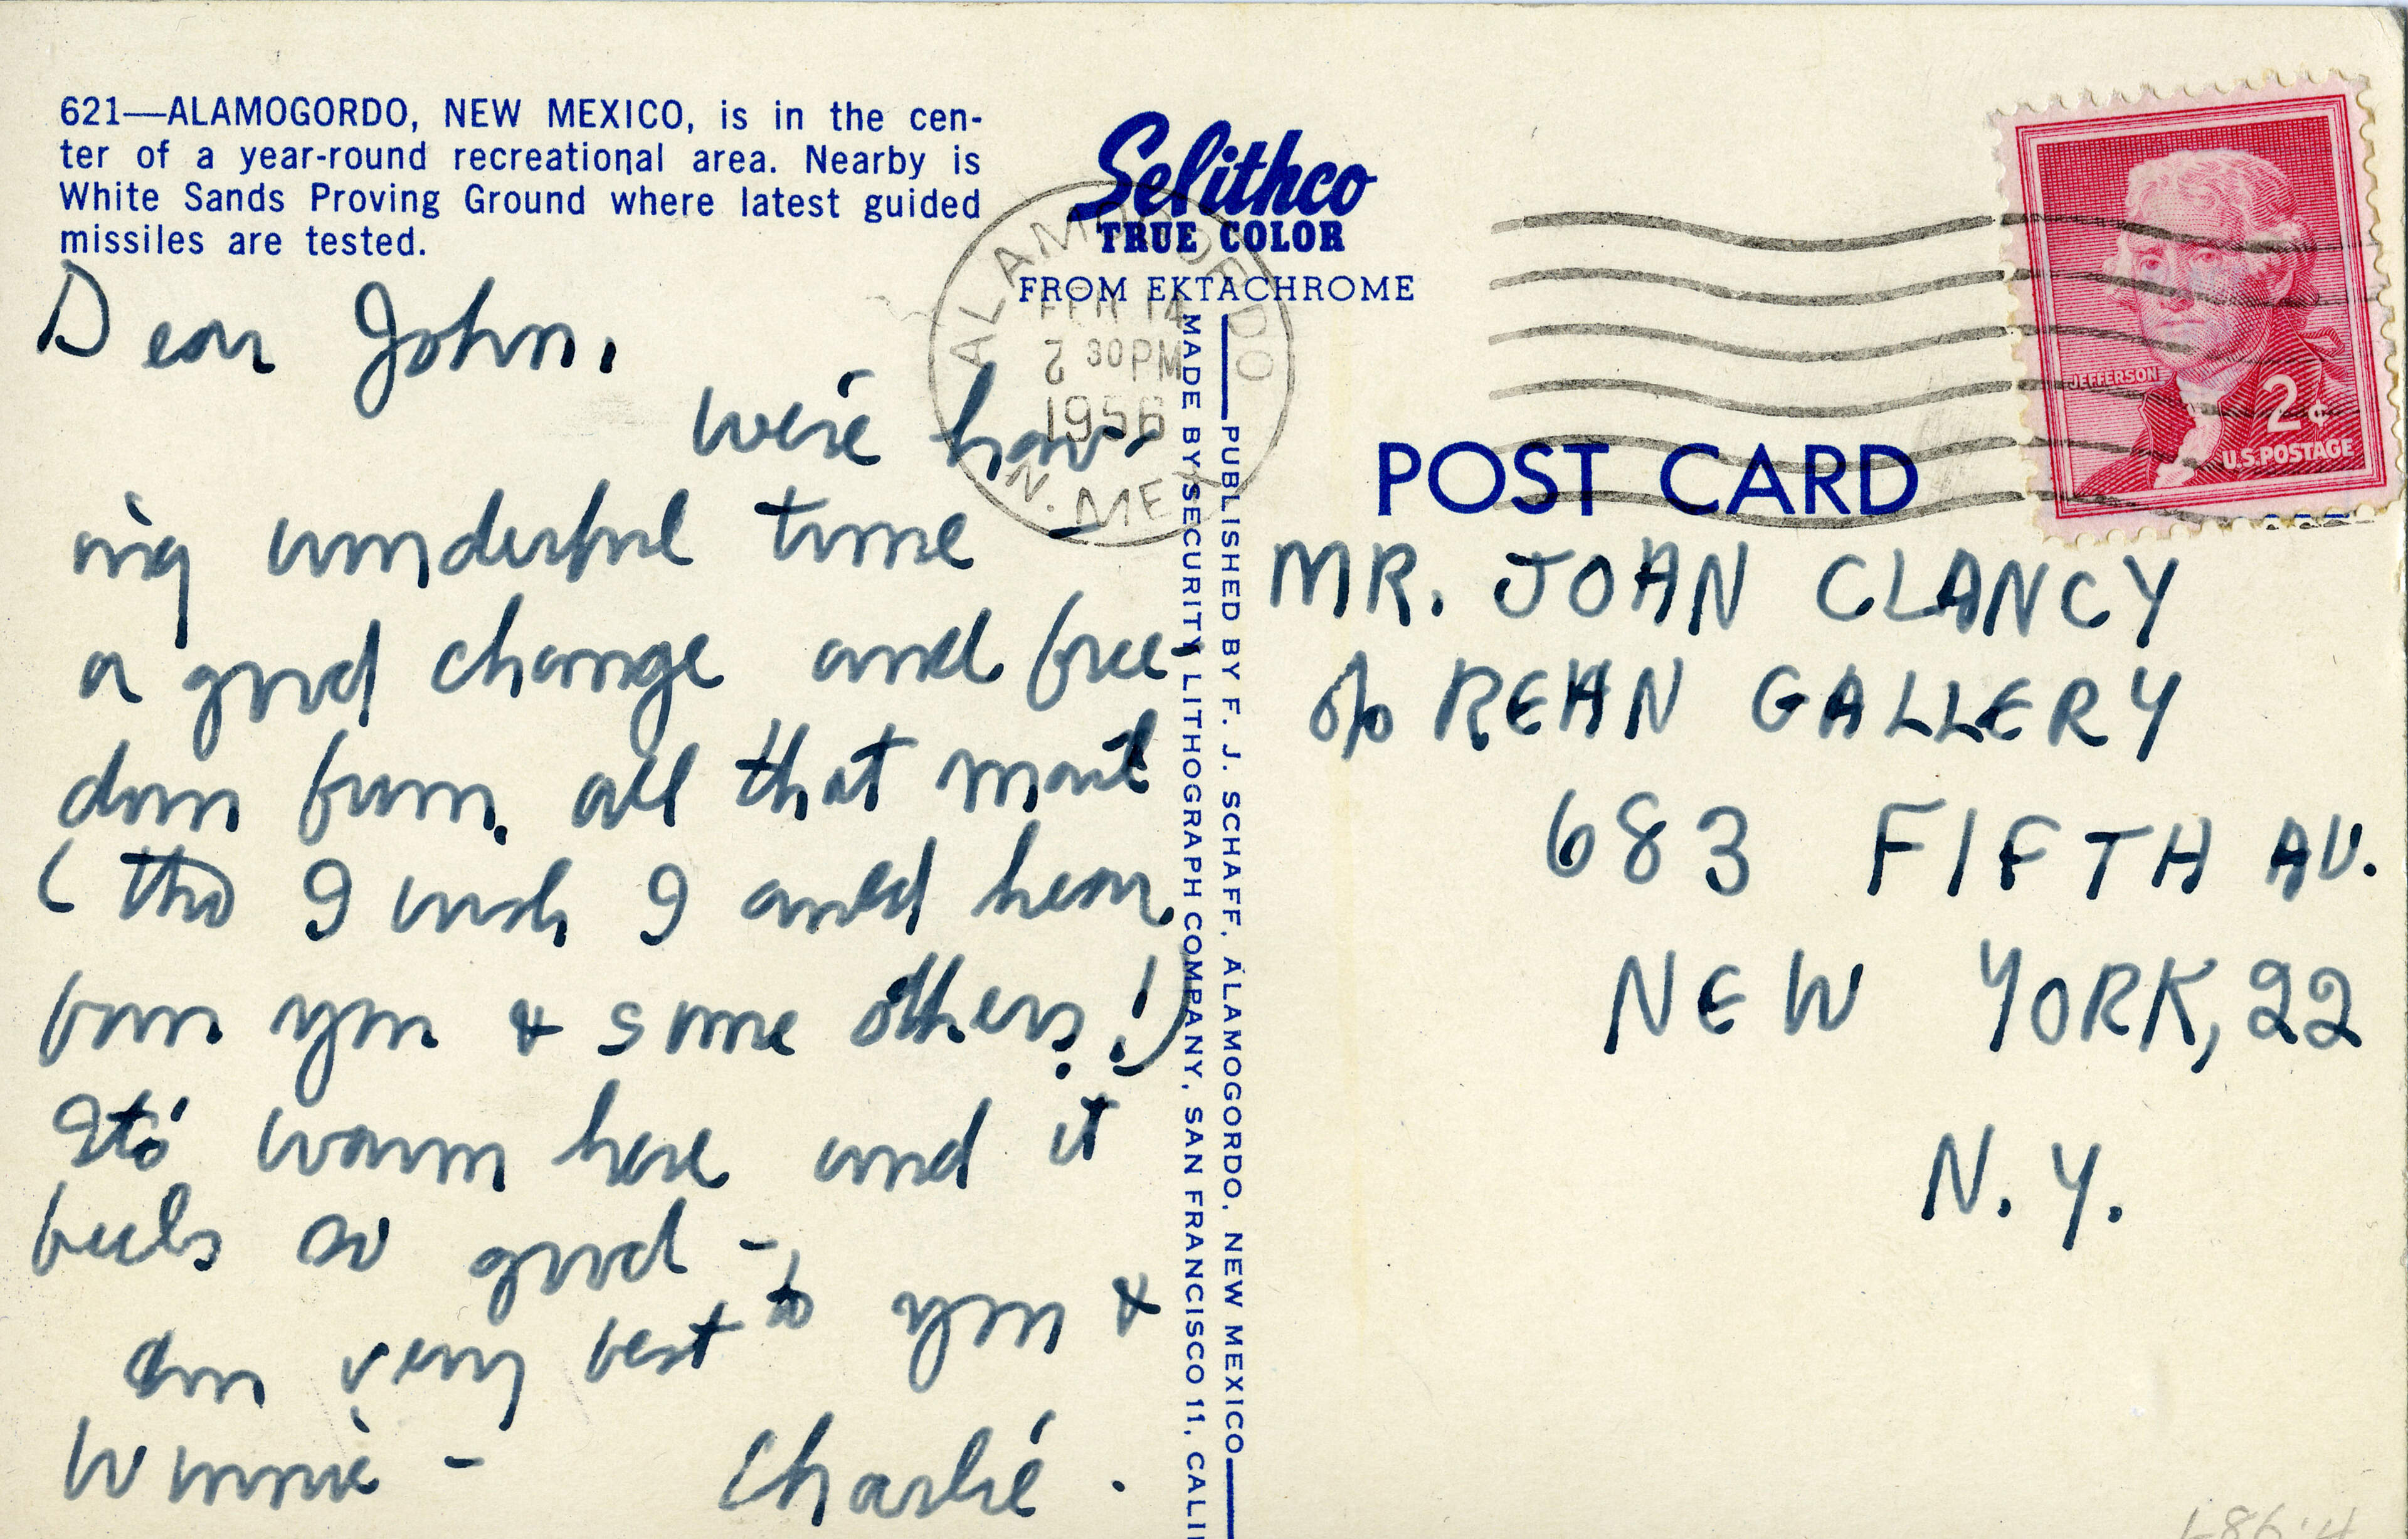 621—ALAMOGORDO, NEW MEXICO, is in the cen-
ter of a year-round recreational area. Nearby is
White Sands Proving Ground where latest guided
missiles are tested.
Dear John,
We're hav-
ing wonderful time –
a good change and free-
dom from all that mail
(tho I wish I could hear
from you & some others!)
It's warm here and it
feels so good –
Our very best to you &
Winnie – Charlie.
Selithco
TRUE COLOR
FROM EKTACHROME
ALAMOGORDO
FEB 14
2 30 PM
1956
N. MEX
PUBLISHED BY F. J. SCHAFF, ALAMOGORDO, NEW MEXICO
MADE BY SECURITY LITHOGRAPH COMPANY, SAN FRANCISCO 11, CALI
JEFFERSON
2¢
U.S. POSTAGE
POST CARD
MR. JOHN CLANCY
c/o REHN GALLERY
683 FIFTH AV.
NEW YORK, 22
N.Y.